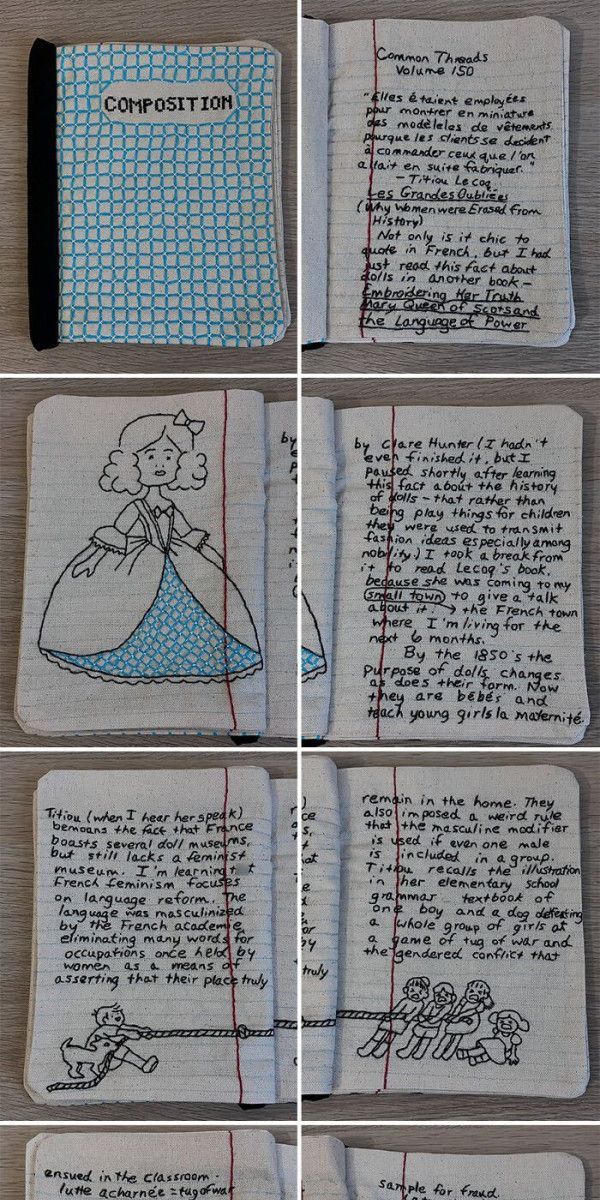 COMPOSITION
Common Threads
Volume 150
"Elles étaient employées
pour montrer en miniature
des modèleles de vêtements
pourque les clients se decident
à commander ceux que l'on
allait en suite fabriquer."
- Titiou Lecoq
Les Grandes Oubliées
(Why Women were Erased from
History)
Not only is it chic to
quote in French, but I had
just read this fact about
dolls in another book -
Embroidering Her Truth
Mary Queen of Scots and
the Language of Power
by
by Clare Hunter (I hadn't
even finished it, but I
paused shortly after learning
this fact about the history
of dolls - that rather than
being play things for children
they were used to transmit
fashion ideas especially among
nobility.) I took a break from
it to read Lecoq's book,
because she was coming to my
small town to give a talk
about it. → the French town
where I'm living for the
next 6 months.
By the 1850's the
purpose of dolls changes
as does their form. Now
they are bébés and
teach young girls la maternité.
Titiou (when I hear her speak)
bemoans the fact that France
boasts several doll museums,
but still lacks a feminist
museum. I'm learning t
French feminism focuses
on language reform. The
language was masculinized
by the French academie
eliminating many words for
occupations once held by
women as a means of
asserting that their place truly
truly
remain in the home. They
also imposed a weird rule
that the masculine modifier
is used if even one male
is included in a group.
Titiou recalls the illustration
in her elementary school
grammar textbook of
one boy and a dog defeating
a whole group of girls at
a game of tug of war and
the gendered conflict that
ensued in the classroom.
lutte acharnée = tug of war
sample for fraud.